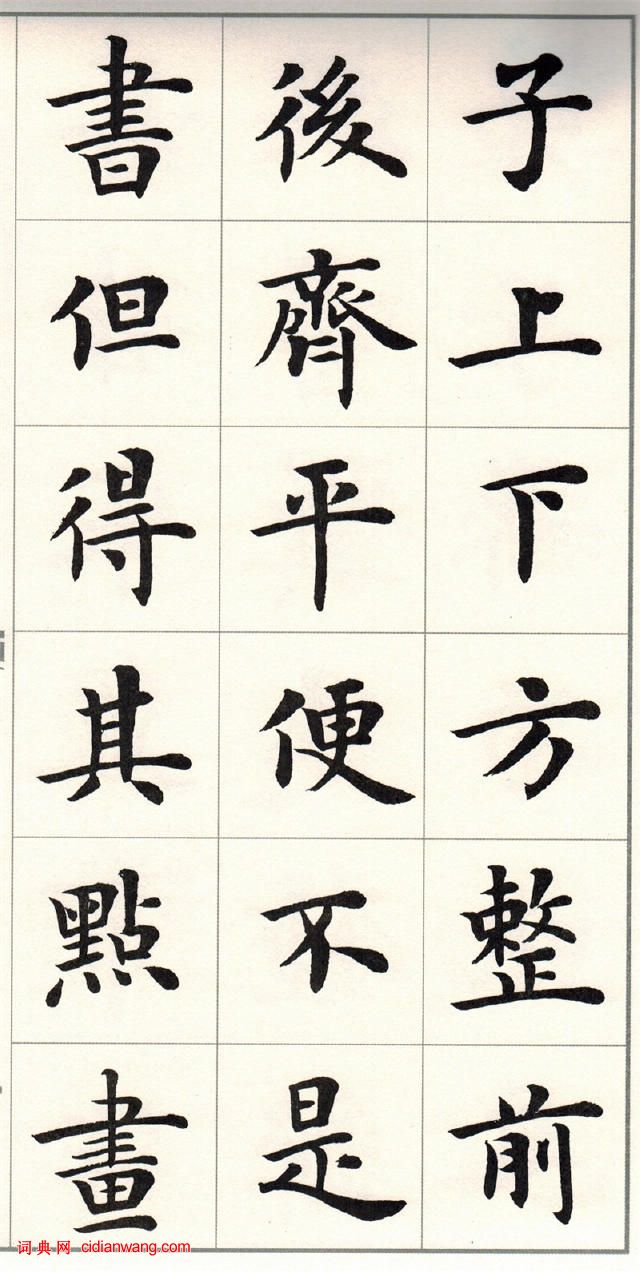 子上下方整前
後齊平便不是
書但得其點畫
词典网 cidianwang.com